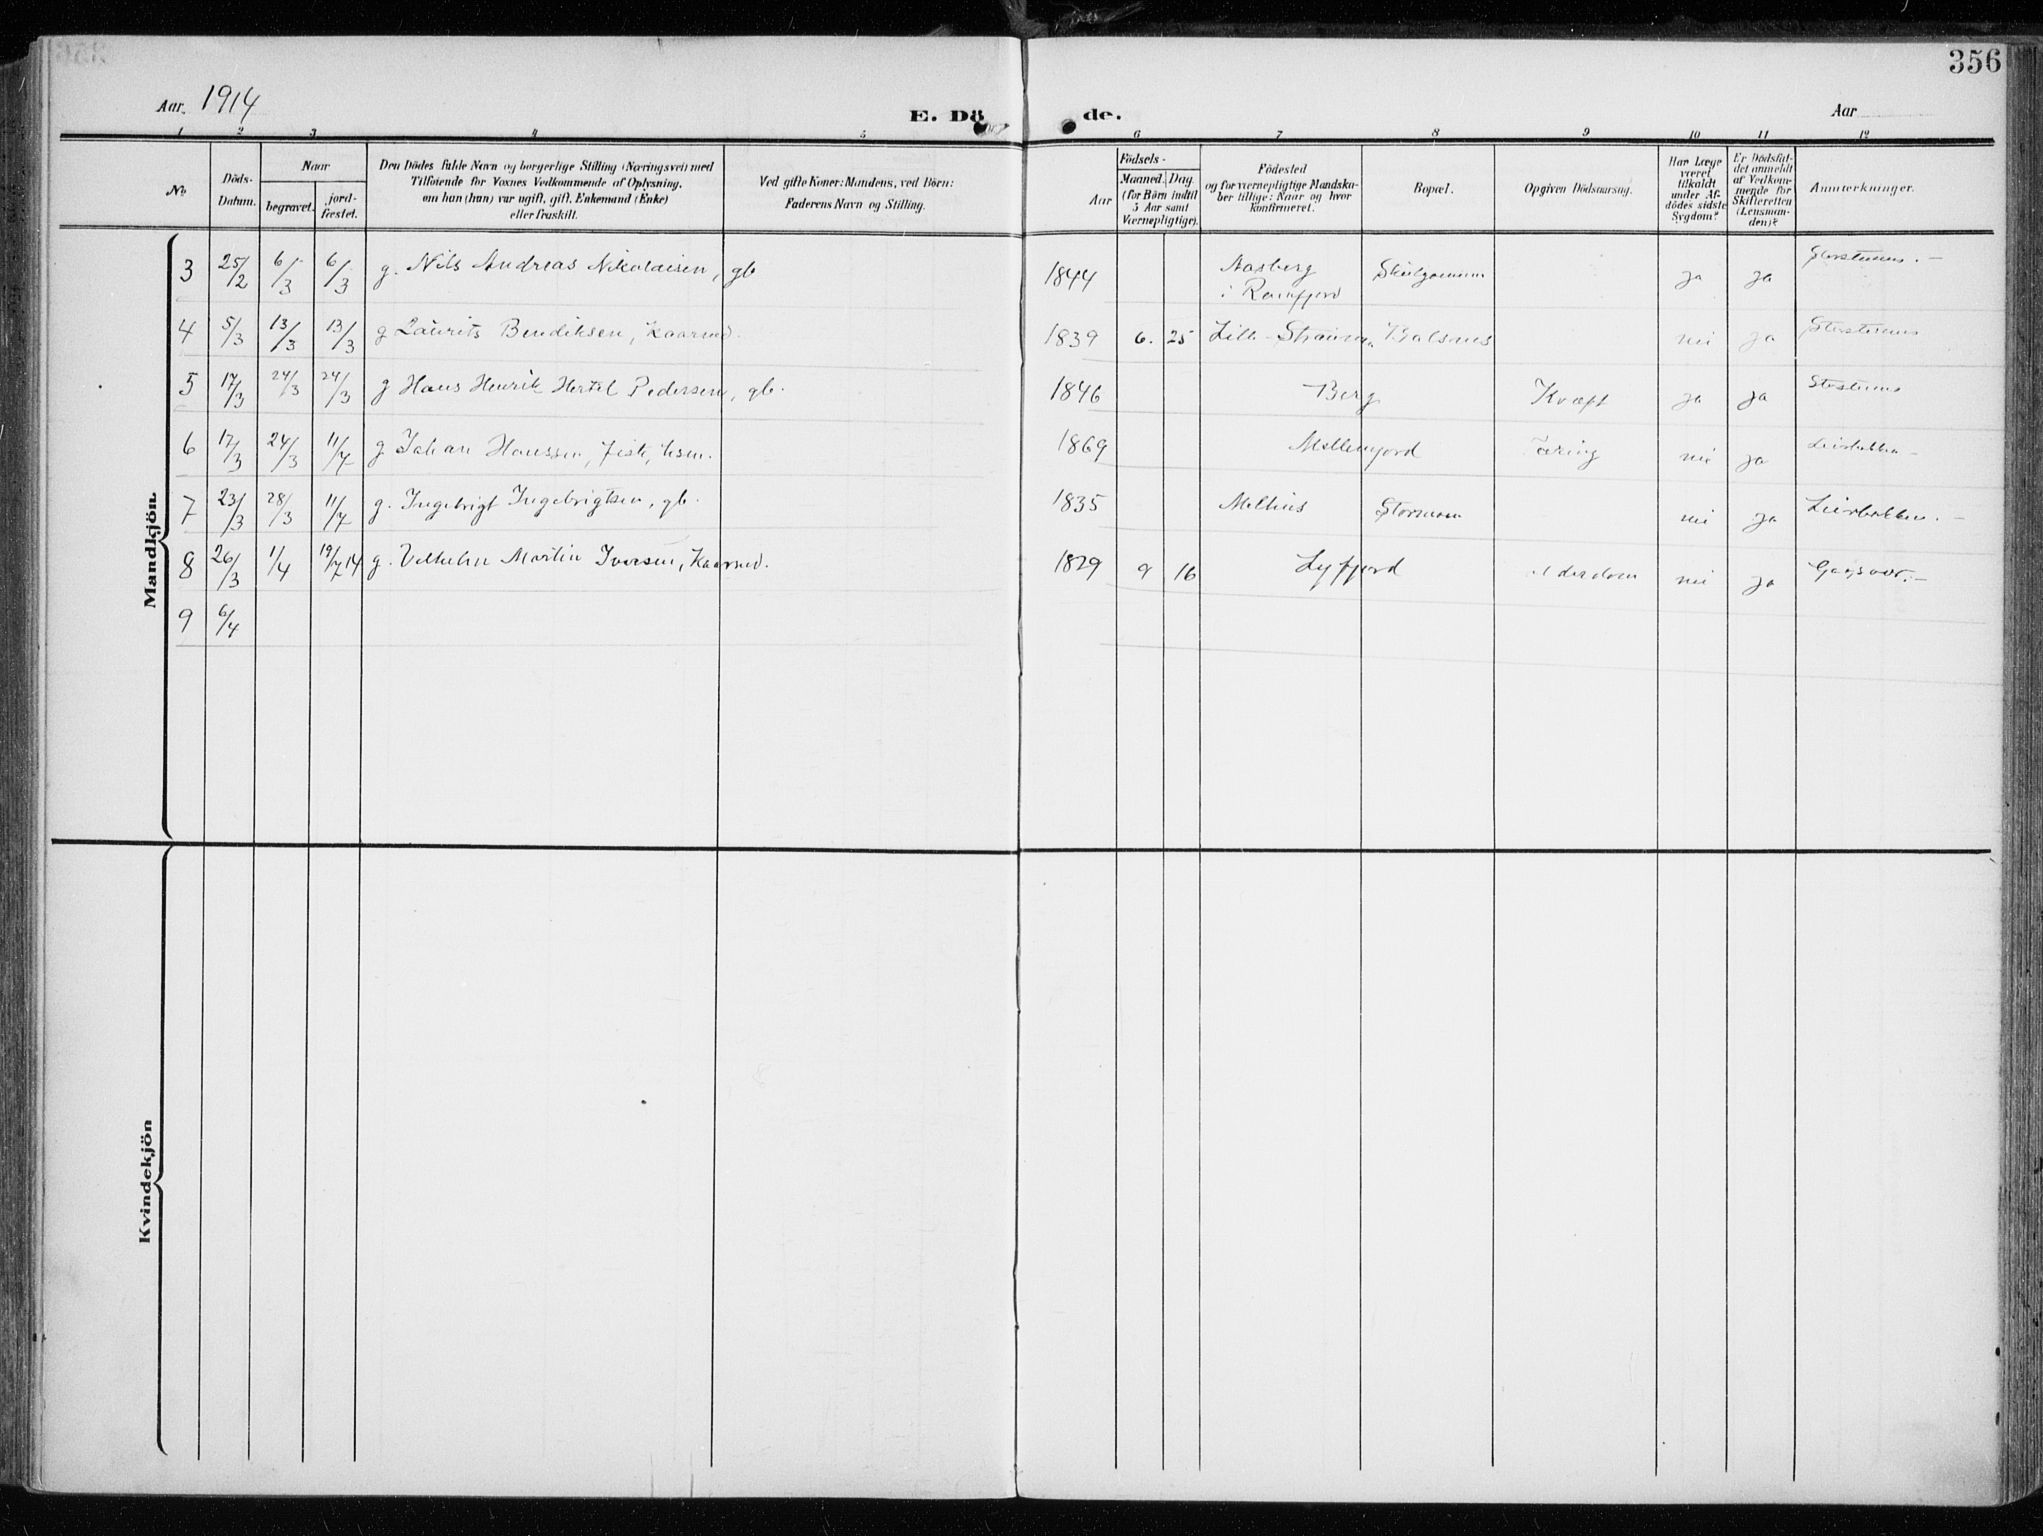 356
Aar. 1914
E. Dö de.
Aar
1 2 3 4 5 6 7 8 9 10 11 12
No
Döds-
Datum.
Naar
begravet.
jord-
fæstet.
Den Dödes fulde Navn og borgerlige Stilling (Næringsvei) med
Tilföiende for Voxnes Vedkommende af Oplysning,
om han (hun) var ugift, gift, Enkemand (Enke)
eller fraskilt.
Ved gifte Koner: Mandens, ved Börn:
Faderens Navn og Stilling.
Födsels-
Aar
Maaned. Dag.
(for Börn indtil
5 Aar samt
Værnepligtige).
Födested
og for værnepligtige Mandska-
ber tillige: Naar og hvor
konfirmeret.
Bopæl.
Opgiven Dödsaarsag.
Har Læge
været
tilkaldt
under Af-
dödes sidste
Sygdom?
Er Dödsfal-
det anmeldt
af Vedkom-
mende for
Skifteretten
(Lensman-
den)?
Anmærkninger.
Mandkjön.
3 25/2 6/3 6/3 g. Nils Andreas Nikolaisen, gb 1844 Aasberg
i Ramfjord ja ja
4 5/3 13/3 13/3 g Laurits Bendiksen, Kaarmd. 1839 6. 25 Lille-Straumen Balsnes nei ja
5 17/3 24/3 24/3 g Hans Henrik Hertel Pedersen, gb. 1846 Berg Kræft ja ja
6 17/3 24/3 11/7 g Johan Hanssen, fisk, hsm. 1869 Mellemjord Tæring nei ja
7 23/3 28/3 11/7 g. Ingebrigt Ingebrigtsen, gb. 1835 Melhus Stormoen nei ja Leirbakken. -
8 26/3 1/4 19/7 14 g. Vilhelm Martin Iversen, Kaarmd. 1829 9 16 Lyfjord Alderdom nei ja
9 6/4
Kvindekjön